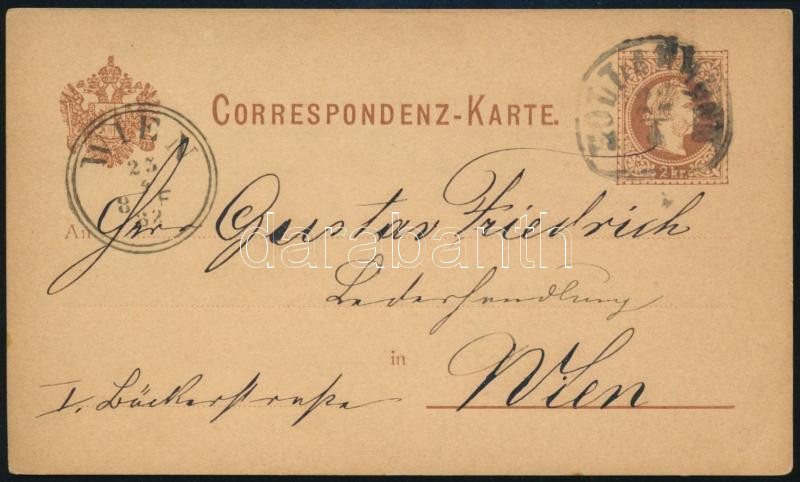 CORRESPONDENZ-KARTE.
2 kr
WIEN
23
8 F
82
An
Herrn Gustav Friedrich
darabanth
Lederhandlung
in
I. Bäckerstraße Wien